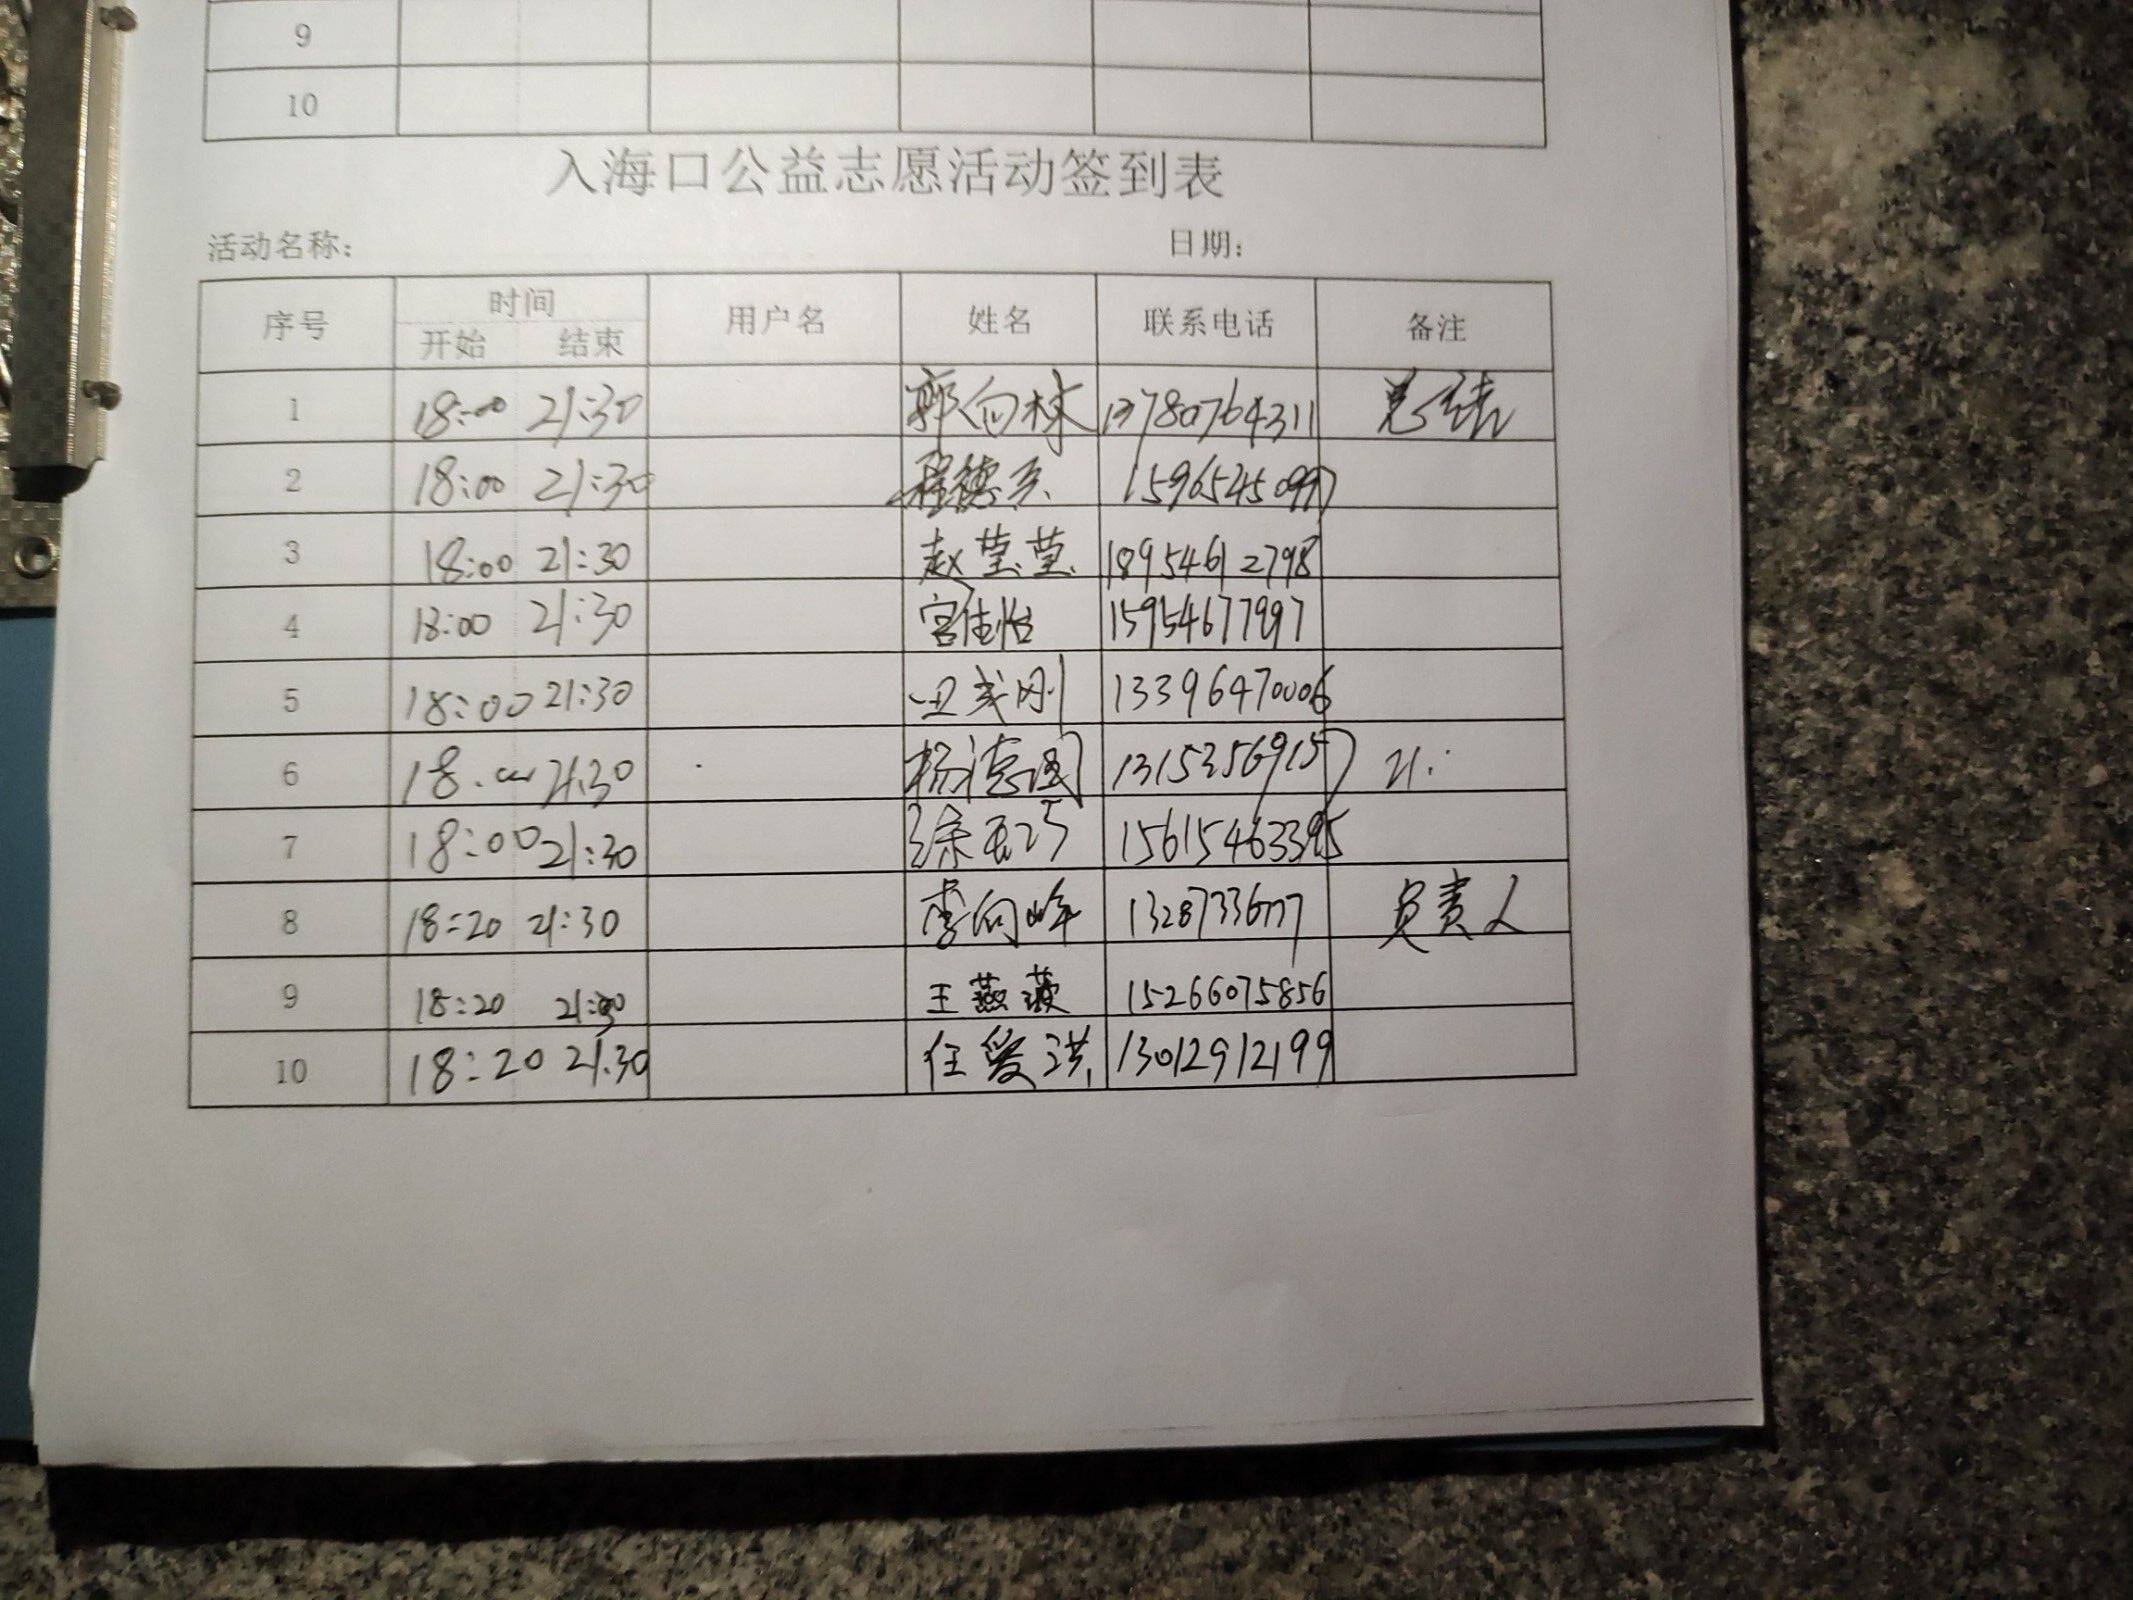 9
10
入海口公益志愿活动签到表
活动名称： 日期：
序号 时间 用户名 姓名 联系电话 备注
开始 结束
1 18:00 21:30 郭向林 13780764311 总结
2 18:00 21:30 程德 15965245099
3 18:00 21:30 赵莹莹 18954612798
4 18:00 21:30 宫佳怡 15954677997
5 18:00 21:30 刚 13396470006
6 18:00 21:30 杨德国 13153569157 21:
7 18:00 21:30 徐玉巧 15615463395
8 18:20 21:30 李向峰 负责人
9 18:20 21:30 王燕 15266075856
10 18:20 21:30 任爱洪 13012912199